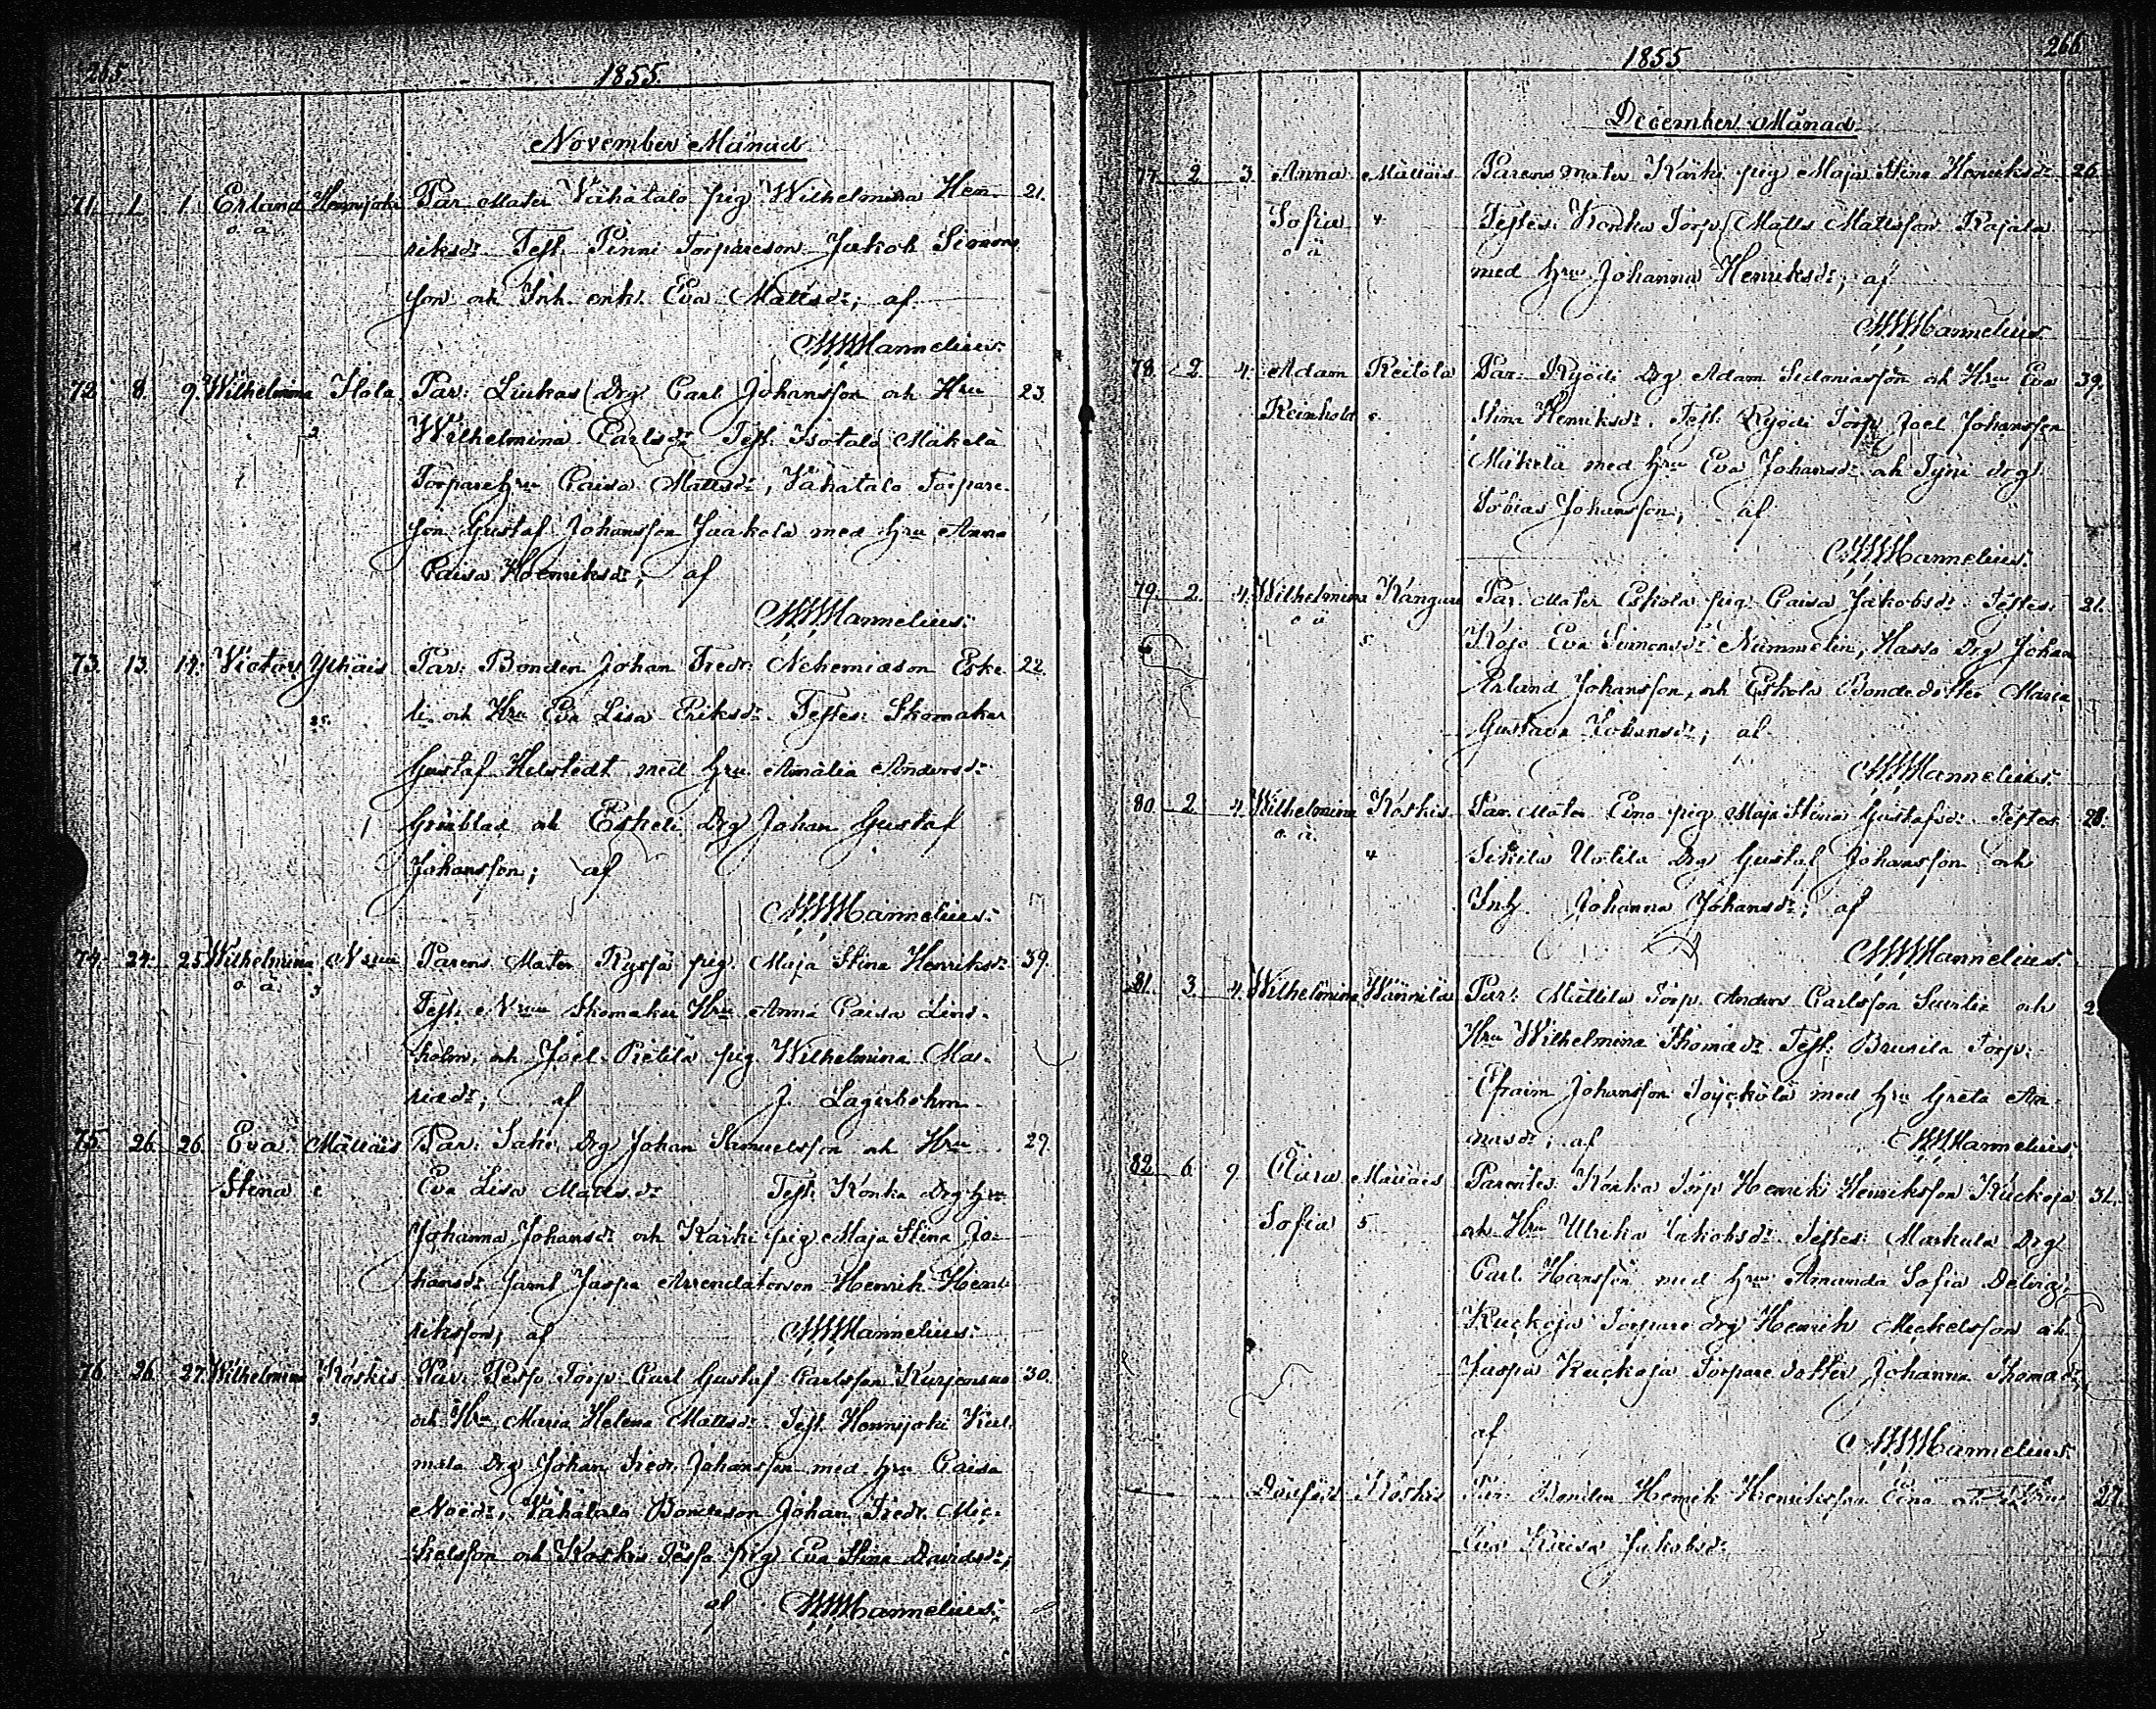 265
1855.
November Månad
71. 1. 1. Erland Hennijoki Par. Mater Vähätalo pig. Wilhelmina Hen- 21.
o. ä. riksdr. Test. Penni Torpareson Jakob Simons
son och Inh. enk. Eva Mattsdr; af
Mannelius.
72. 8. 9. Wilhelmina Ilola Par: Liukas Drg. Carl Johansson och Hru 23.
3 Wilhelmina Carlsdr Test. Isotalo Mäkelä
Torpare hru Caisa Mattsdr, Vähätalo Torpare-
son Gustaf Johansson Jaakola med hru Anna
Caisa Henriksdr, af
Mannelius.
73. 13. 14. Victor Yhäis Par: Bonden Johan Fredr. Nehemiason Eske- 22.
li och Hru Eva Lisa Eriksdr. Testes: Skomakar
Gustaf Helstedt med hru Amalia Andersdr
Grönblad och Eskeli Drg Johan Gustaf
Johansson; af
Mannelius.
74. 24. 25. Wilhelmina Parens Mater Ryssä pig. Maja Stina Henriksdr 39.
o. ä. 3 Test. Skomakar Hru Anna Caisa Lind-
holm, och Joel Pietilä pig. Wilhelmina Ma-
riadr; af J. Lagerbohm
75. 26. 26. Eva Mättäis Par: Saki Drg Johan Samuelsson och Hru 29.
Stina Eva Lisa Mattsdr Test: Konka Drg hru
Johanna Johansdr och Kärki pig Maja Stina Jo-
hansdr samt Jaspa Arrendatorson Henrik Hen-
riksson, af Mannelius.
76. 26. 27. Wilhelmina Koskis Par: Torp. Carl Gustaf Carlsson Kurjensuo 30.
3. och Hru Maria Helena Mattsdr. Test. Hennijoki
Drg Johan Fredr. Johansson med hru Caisa
Noedr, Vähätalo Bondeson Johan Fredr. Mic-
kelsson och Koskis pig Eva Stina Davidsdr;
af Mannelius.
266
1855
December Månad
77. 2. 3. Anna Mättäis Parens Mater Kärki pig Maja Stina Henriksdr 26.
Sofia 4 Testes: Konka Torp. Matts Mattsson Kajala
o ä med hru Johanna Henriksdr; af
Mannelius.
78. 2. 4. Adam Keitola Par: Ryödi Drg Adam Sidoniasson och Hru Eva 39.
Reinhold Stina Henriksdr. Test: Ryödi Torp Joel Johansson
Mäkelä med hru Eva Johansdr och Tyni drg
Tobias Johansson, af
Mannelius.
79. 2. 4. Wilhelmina Par. Mater Eskola pig. Caisa Jakobsdr Testes: 21.
o ä 5 Kojo Eva Simonsdr Nummelin, Hasso Drg Johan
Arland Johansson, och Eskola Bondedotter Maria
Gustava Johansdr; af
Mannelius.
80. 2. 4. Wilhelmina Koskis Par. Mater Eino pig Maja Stina Gustafsdr Testes: 28.
o. ä. 4 Uotila Drg Gustaf Johansson och
Inh. Johanna Johansdr; af
Mannelius.
81. 3. 4. Wilhelmina Wännilä Par: Mattila Torp. Anders Carlsson och 2
Hru Wilhelmina Thomasdr. Test: Brusila Torp:
Efraim Johansson med hru Greta
af Mannelius.
82. 6. 9. Clara Mättäis Parentes: Konka Torp Henrik Henriksson Kuckoja 31.
Sofia 5 och Hru Ulrika Jakobsdr Testes: Markula Drg
Carl Hansson med hru Amanda Sofia Deling;
Kuckoja Torpare drg Henrik Mickelsson och
Jaspa Kuckoja Torpare dotter Johanna Thomasdr,
af Mannelius.
Dödfödt Koskis Par: Bonden Henrik Henriksson Eino och Hru 27.
Eva Kaisa Jakobsdr